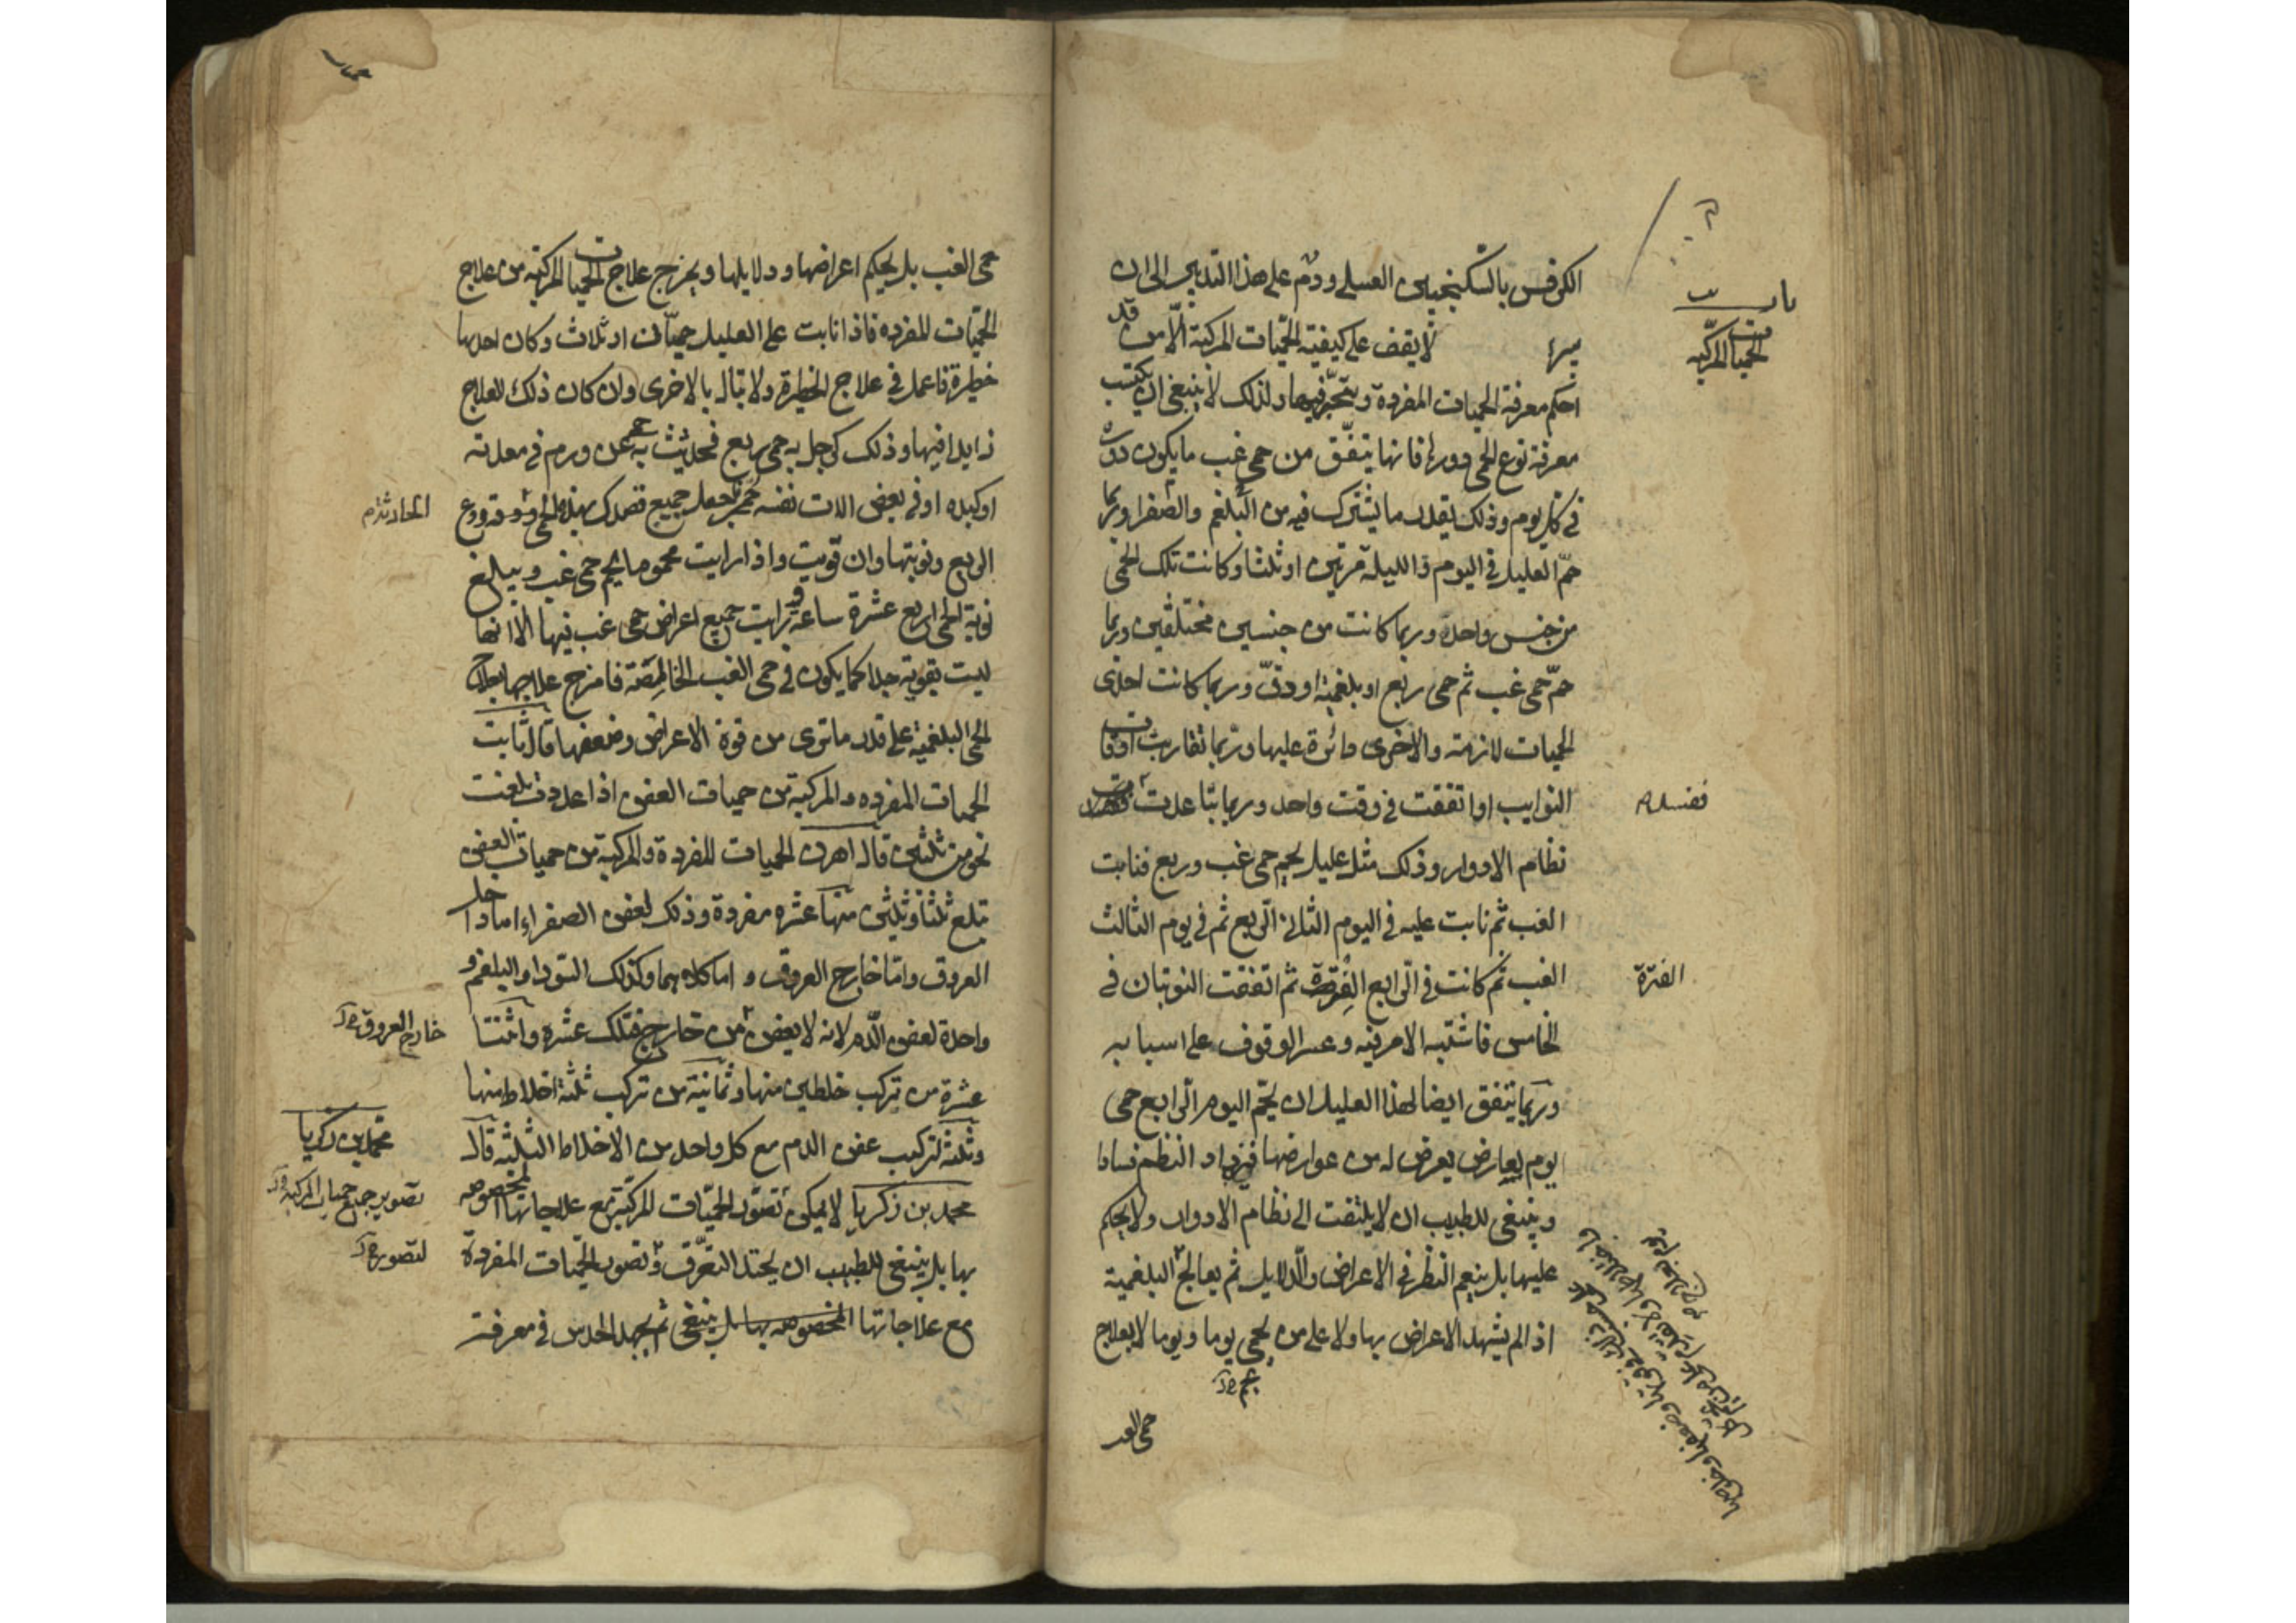 الكرفس بالسكنجبين العسلي ودُم على هذا التدبير الى ان
باب
الحميات المركبه
لا يقف على كيفية الحمّيات المركبة الّا من قد
احكم معرفة الحميات المفردة وتبحّر فيها ولذلك لا ينبغي ان يكتب
معرفة نوع الحمى دورها فانها يتفّق من حمى غب ما يكون دوره
في كل يوم وذلك بقدر ما يشترك فيه من البلغم والصفرا وربما
حمّ العليل في اليوم والليلة مرتين او ثلثا وكانت تلك الحمى
من جنس واحد وربما كانت من جنسين مختلفين وربما
حمّ حمى غب ثم حمى ربع او بلغمية او دقّ وربما كانت احدى
الحميات لازمة والاخرى دائرة عليها وربما تقاربت اوقات
النوايب او اتفقت في وقت واحد وربما تباعدت
نظام الادوار وذلك مثل عليل يحم حمى غب وربع فنابت
الغب ثم نابت عليه في اليوم الثاني الربع ثم في يوم الثالث
الغب ثم كانت في الرابع الفترة ثم اتفقت النوبتان في
الفترة
الخامس فاشتبه الامر فيه وعسر الوقوف على اسبابه
وربما يتفق ايضا لهذا العليل ان يحمّ اليوم الرابع حمى
يوم بعارض يعرض له من عوارضها فيزداد النظم فسادا
وينبغي للطبيب ان لا يلتفت الى نظام الادوار ولا يحكم
عليها بل ينعم النظر في الاعراض والدلايل ثم يعالج البلغمية
اذا لم يشهد الاعراض بها ولا على من يحمى يوما ويوما لا بعلاج
يحم صح
حمى الغب
حمى الغب بل يحكم اعراضها ودلايلها ويخرج علاج الحميات المركبة من علاج
الحمّيات المفرده فاذا نابت على العليل حميّان او ثلاث وكان احدها
خطيرة فاعمل في علاج الخطيرة ولا تبال بالاخرى وان كان ذلك العلاج
زايدا فيها وذلك كرجل به حمى ربع فحدثت به حمى عن ورم في معدته
او كبده او في بعض الات نفسه فاجعل جميع قصدك بهذه الحمى ودع
الحادثة م
الربع ونوبتها وان قويت واذا رايت محموما يحم حمى غب ويبلغ
نوبة الحمى اربع عشرة ساعة ورايت جميع اعراض حمى غب فيها الا انها
ليست بقوية جدا كما يكون في حمى الغب الخالصة فامزج علاجها بعلاج
الحمى البلغمية على قدر ما ترى من قوة الاعراض وضعفها قال ثابت
الحميات المفرده والمركبة من حميات العفن اذا عددت بلغت
نحو من ثلثين قال اهرن الحميات المفردة والمركبة من حميات العفن
تبلغ ثلثا وثلثين منها عشره مفردة وذلك لعفن الصفراء اما داخل
العروق واما خارج العروق و اما كلاهما وكذلك السودا والبلغم و
واحدة لعفن الدم لانه لا يعفن من خارج فتلك عشره واثنتا
خارج العروق صح
عشرة من تركب خلطين منها وثمانية من تركب ثلثة اخلاط منها
وثلثة لتركيب عفن الدم مع كل واحد من الاخلاط الثلثة قال
محمد بن زكريا
محمد بن زكريا لا يمكن تصوّر الحمّيات المركبة مع علاجاتها المخصوصه
تصوير جميع حميات المركبة صح
بها بل ينبغي للطبيب ان يحتد التعرّف وتصور الحمّيات المفردة
لتصور صح
مع علاجاتها المخصوصه بها بل ينبغي ثم يجهد الحدس في معرفة